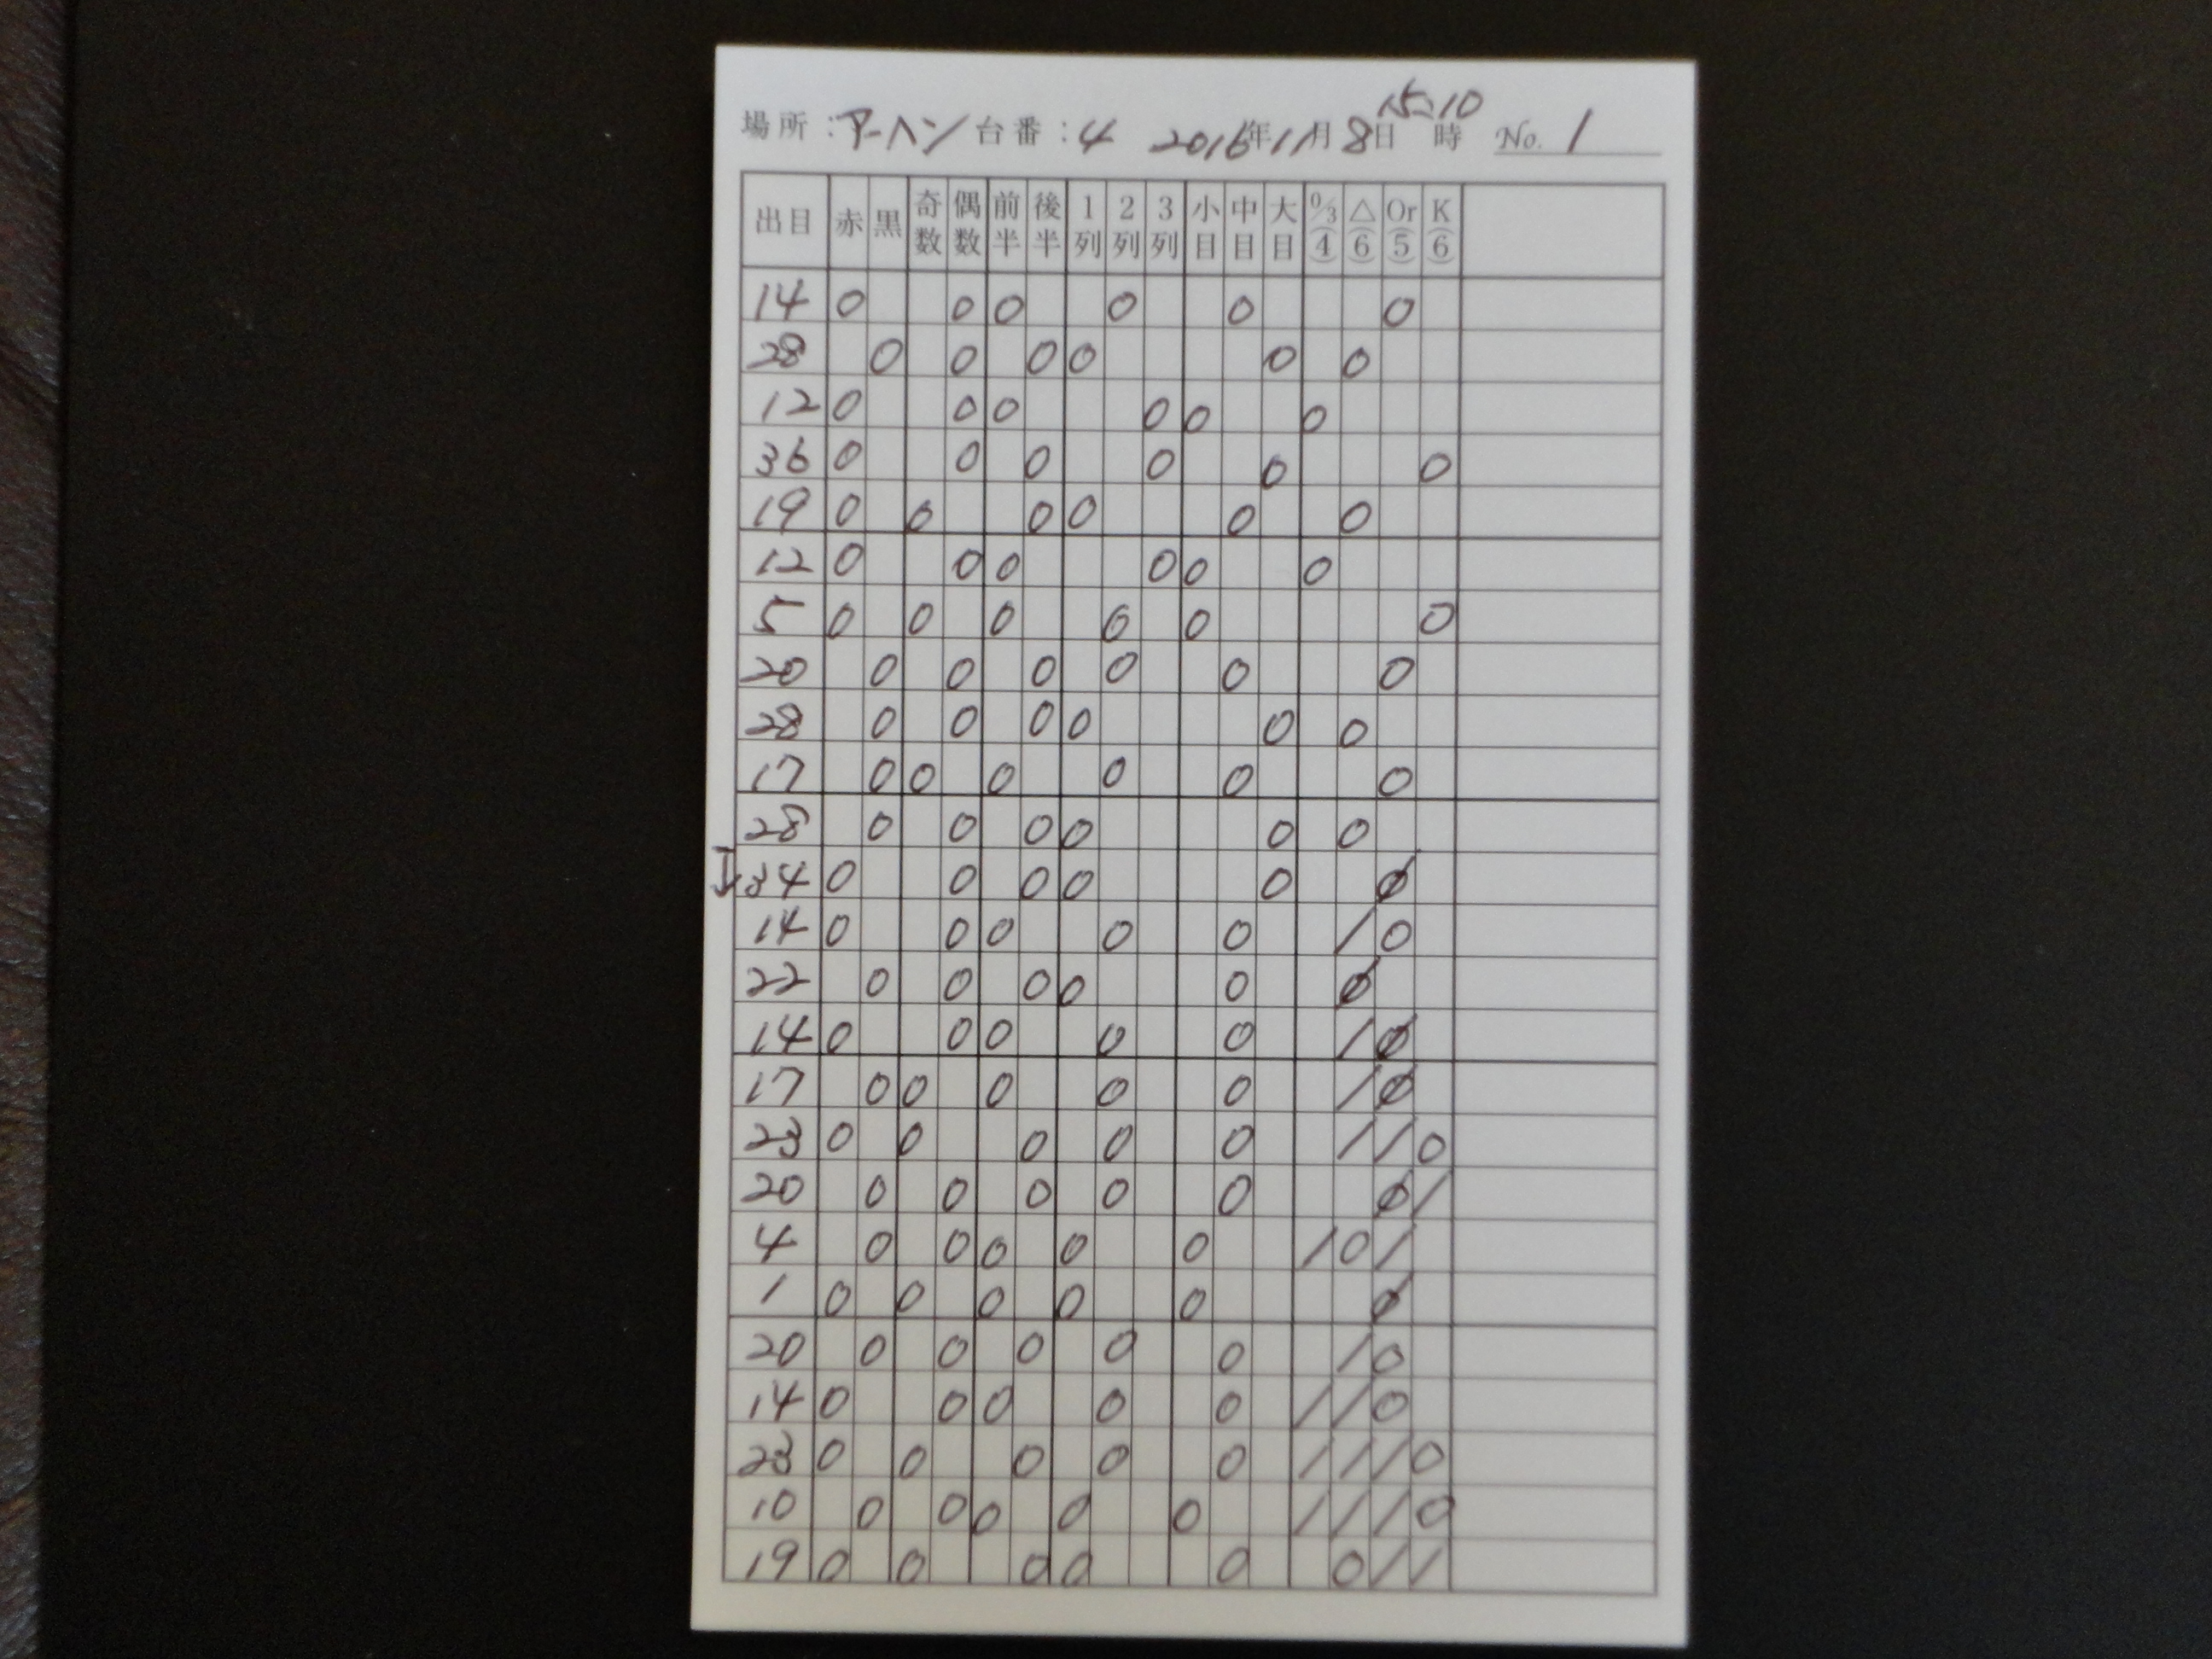 15:10
場所:アーヘン 台番:4 2016年11月8日 時 No. 1
出目 赤 黒 奇数 偶数 前半 後半 1列 2列 3列 小目 中目 大目 0/3(4) △(6) Or(5) K(6)
14 0 0 0 0 0 0
28 0 0 0 0 0 0
12 0 0 0 0 0 0
36 0 0 0 0 0 0
19 0 0 0 0 0 0
12 0 0 0 0 0 0
5 0 0 0 0 0 0
20 0 0 0 0 0 0
28 0 0 0 0 0 0
17 0 0 0 0 0 0
28 0 0 0 0 0 0
34 0 0 0 0 0 Ø
14 0 0 0 0 0 / 0
22 0 0 0 0 0 Ø
14 0 0 0 0 0 / Ø
17 0 0 0 0 0 / Ø
23 0 0 0 0 0 / / 0
20 0 0 0 0 0 Ø /
4 0 0 0 0 0 / 0 /
1 0 0 0 0 0 Ø
20 0 0 0 0 0 / 0
14 0 0 0 0 0 / / 0
23 0 0 0 0 0 / / / 0
10 0 0 0 0 0 / / / 0
19 0 0 0 0 0 0 / /